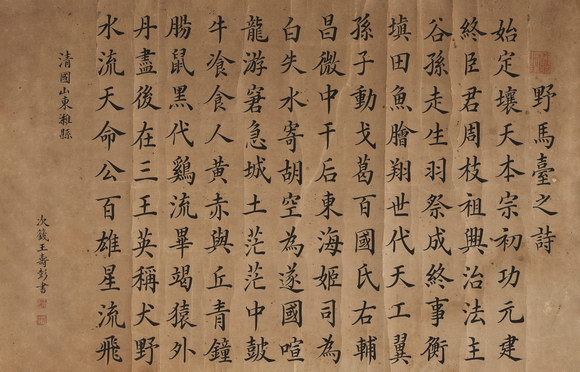 野馬臺之詩
始定壤天本宗初功元建
終臣君周枝祖興治法主
谷孫走生羽祭成終事衡
塡田魚膾翔世代天工翼
孫子動戈葛百國氏右輔
昌微中干后東海姬司為
白失水寄胡空為遂國喧
龍游窘急城土茫茫中鼓
牛飡食人黃赤與丘青鐘
腸鼠黑代鷄流畢竭猿外
丹盡後在三王英稱犬野
水流天命公百雄星流飛
清國山東濰縣
次籛王壽彭書